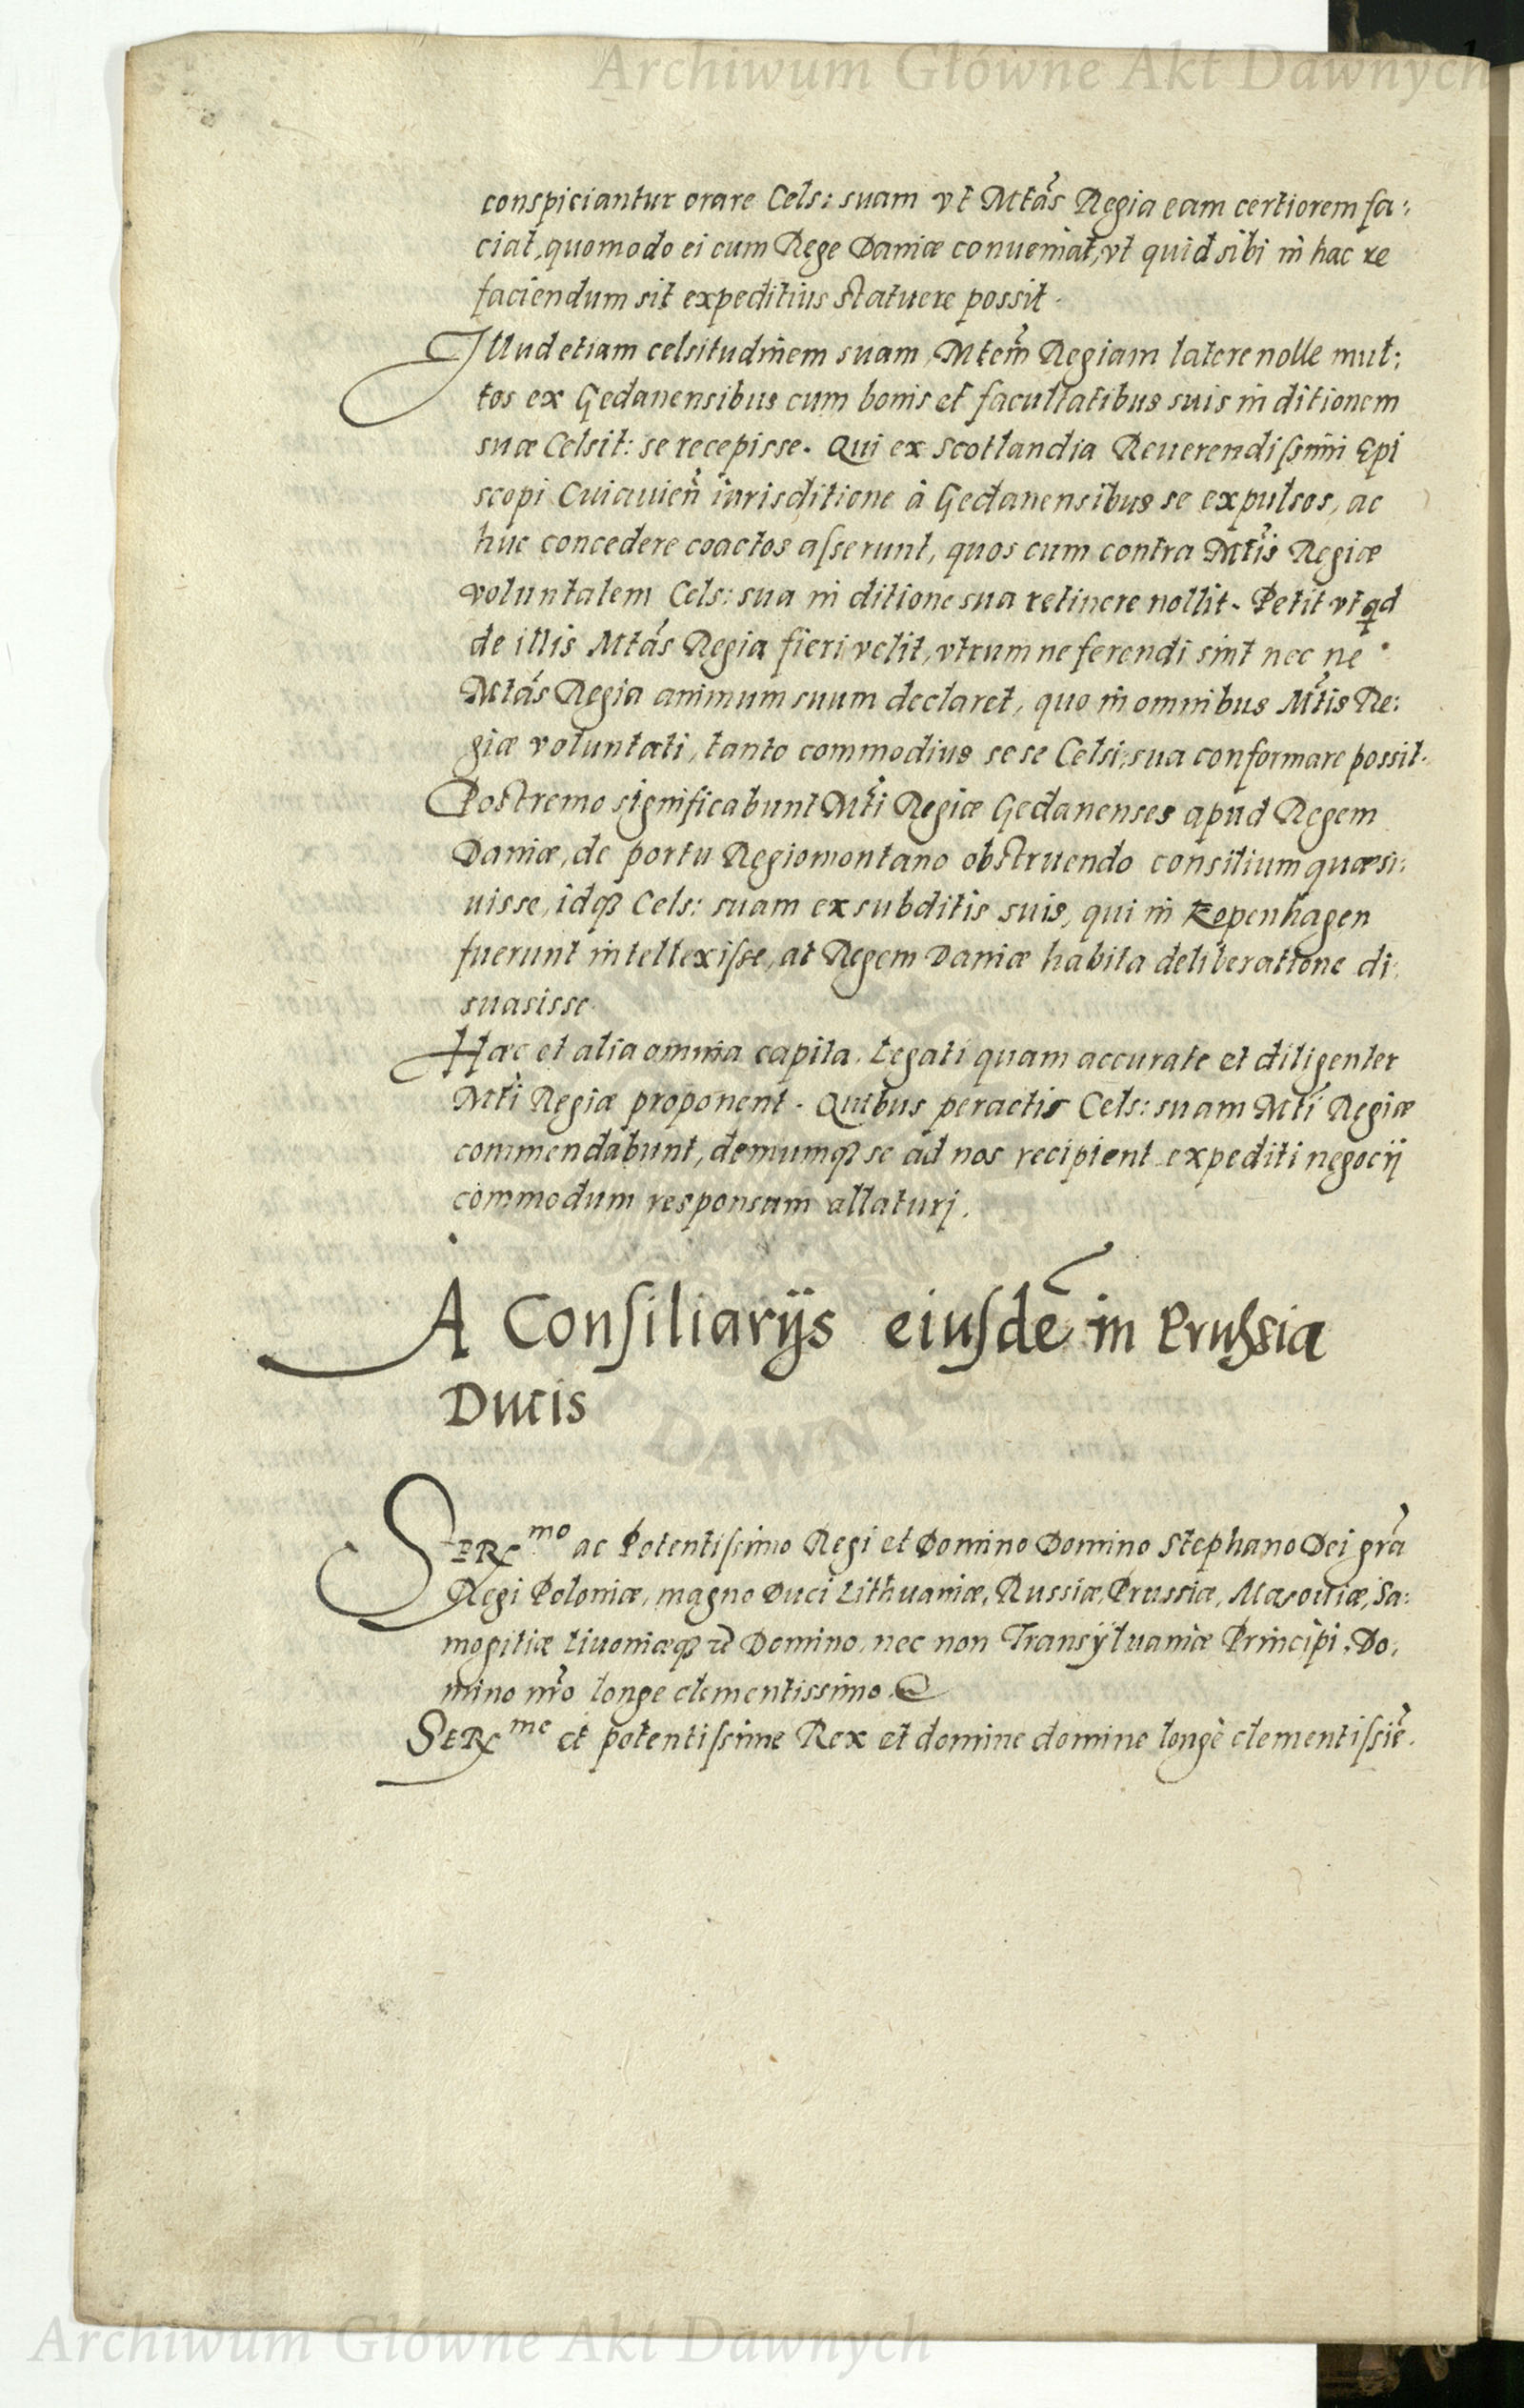 Archiwum Główne Akt Dawnych
conspiciantur orare Cels: suam vt Mtas Regia eam certiorem fa:
ciat, quomodo ei cum Rege Daniæ conueniat, vt quid sibi in hac re
faciendum sit expeditius statuere possit.
Illud etiam celsitudinem suam, Mtem Regiam latere nolle mul:
tos ex Gedanensibus cum bonis et facultatibus suis in ditionem
suæ Celsit: se recepisse. Qui ex Scotlandia Reuerendissimi Epi
scopi Cuiauien iurisditione à Gedanensibus se expulsos, ac
huc concedere coactos asserunt, quos cum contra Mtis Regiæ
voluntatem Cels: sua in ditione sua retinere nollit. Petit vt qd
de illis Mtas Regia fieri velit, vtrum ne ferendi sint nec ne
Mtas Regia animum suum declaret, quo in omnibus Mtis Re:
giæ voluntati, tanto commodius sese Celsi: sua conformare possit.
Postremo significabunt Mti Regiæ Gedanenses apud Regem
Daniæ, de portu Regiomontano obstruendo consilium quæsi:
uisse, idq3 Cels: suam ex subditis suis, qui in Kopenhagen
fuerunt intellexisse, at Regem Daniæ habita deliberatione di:
suasisse.
Hæc et alia omnia capita. Legati quam accurate et diligenter
Mti Regiæ proponent. Quibus peractis Cels: suam Mti Regiæ
commendabunt, demumq3 se ad nos recipient expediti negocij
commodum responsum allaturj.
A Consiliarijs eiusdē in Prussia
Ducis
SERE^mo ac Potentissimo Regi et Domino Domino Stephano Dei gra
Regi Poloniæ, magno Duci Lithuaniæ, Russiæ, Prussiæ, Masouiæ, Sa:
mogitiæ Liuoniæq3 &c Domino, nec non Transÿluaniæ Principi, Do,
mino nro longe clementissimo.
SERE^me et potentissime Rex et domine domine longè clementissie.
DAWNYCH
Archiwum Główne Akt Dawnych